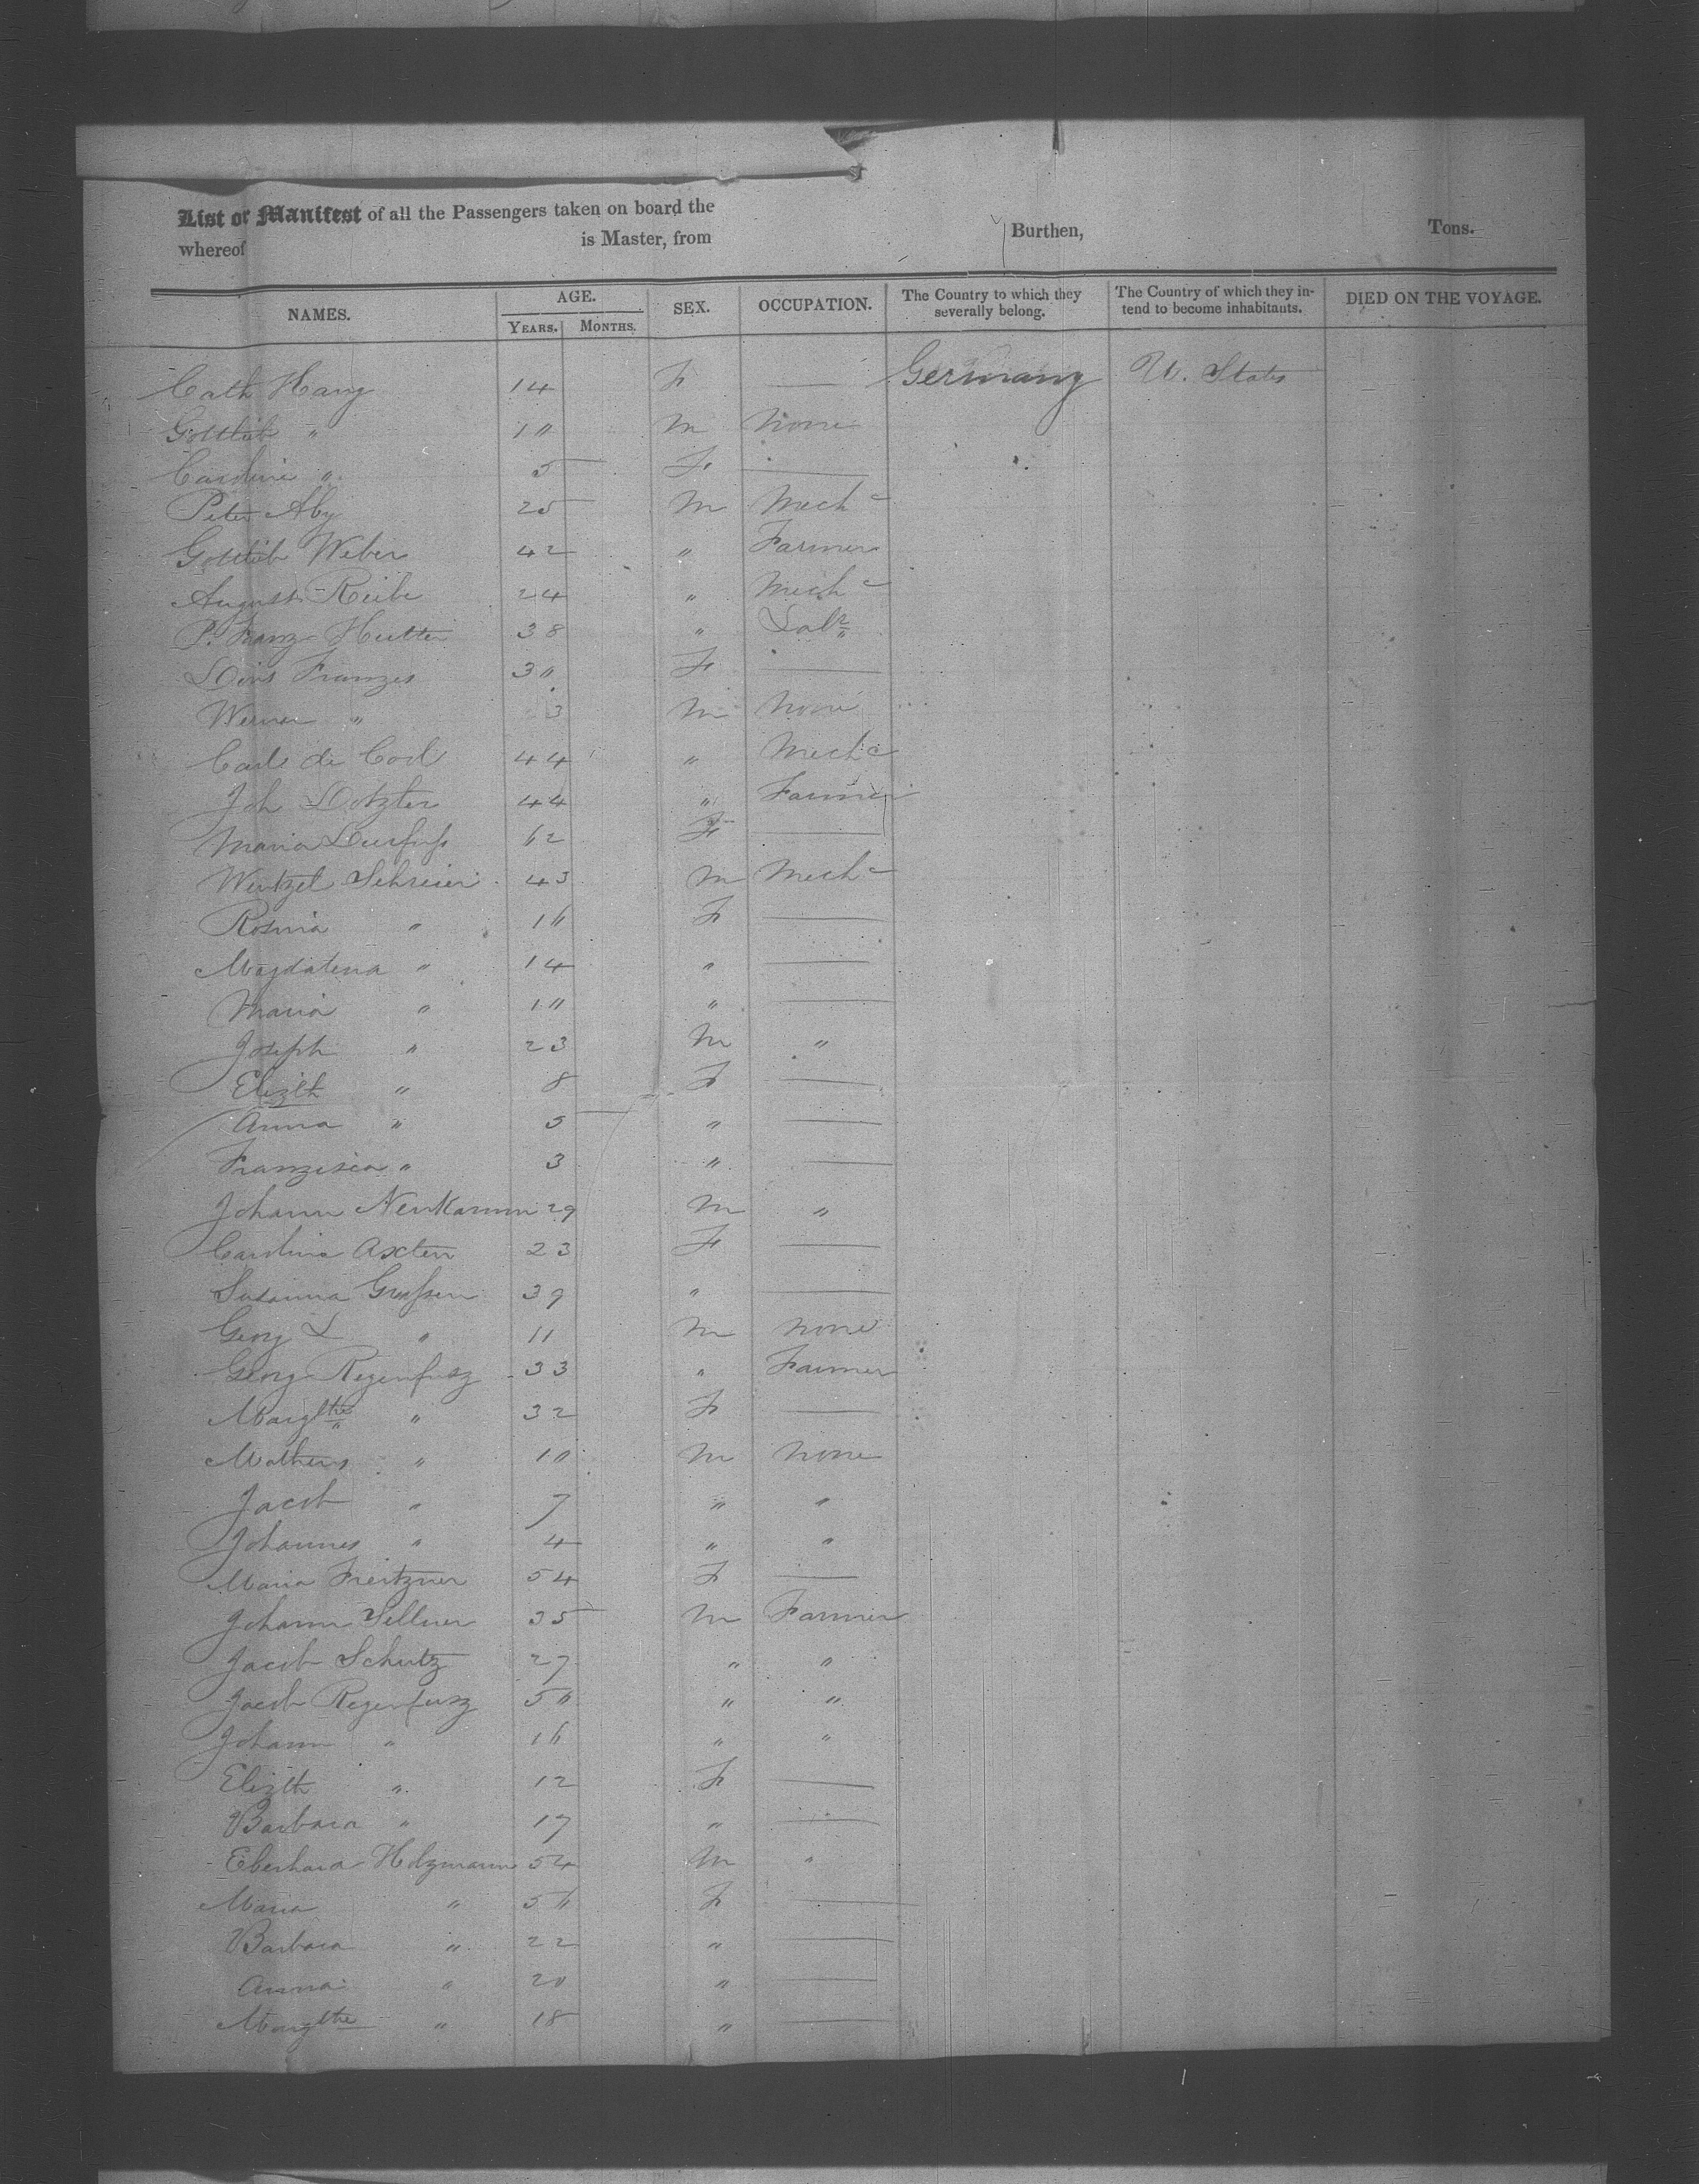 List or Manifest of all the Passengers taken on board the Burthen, Tons.
whereof is Master, from
NAMES. AGE. SEX. OCCUPATION. The Country to which they severally belong. The Country of which they intend to become inhabitants. DIED ON THE VOYAGE.
YEARS. MONTHS.
Cath Hang 14 F — Germany U. States
Gottlieb " 10 M None
Caroline " 5 F —
Peter Aby 25 M Mechc
Gottlieb Weber 42 " Farmer
August Reibe 24 " Mechc
P. Franz Hutter 38 " Labr
Franzis 30 F —
Werner " 3 M None
Carl de 44 " Mechc
Joh Dotzler 44 " Farmer
Maria 62 F —
Wentzel Schreier 43 M Mechc
Rosina " 16 F —
Magdalena " 14 " —
Maria " 10 " —
Joseph " 23 M "
Elizth " 8 F —
Anna " 5 " —
Franzisca " 3 " —
Johann Neukamm 29 M "
Caroline Axter 23 F —
Susanna 39 " —
Georg L " 11 M None
Georg Regenfusz 33 " Farmer
Margthe " 32 F —
Matheus " 10 M None
Jacob " 7 " "
Johannes " 4 " "
Maria Freitzner 54 F —
Johann Sellner 35 M Farmer
Jacob Schutz 27 " "
Jacob Regenfusz 50 " "
Johann " 16 " "
Elizth " 12 F —
Barbara " 17 " —
Eberhard Holzmann 54 M "
Maria " 56 F —
Barbara " 22 " —
Anna " 20 " —
Margthe " 18 " —